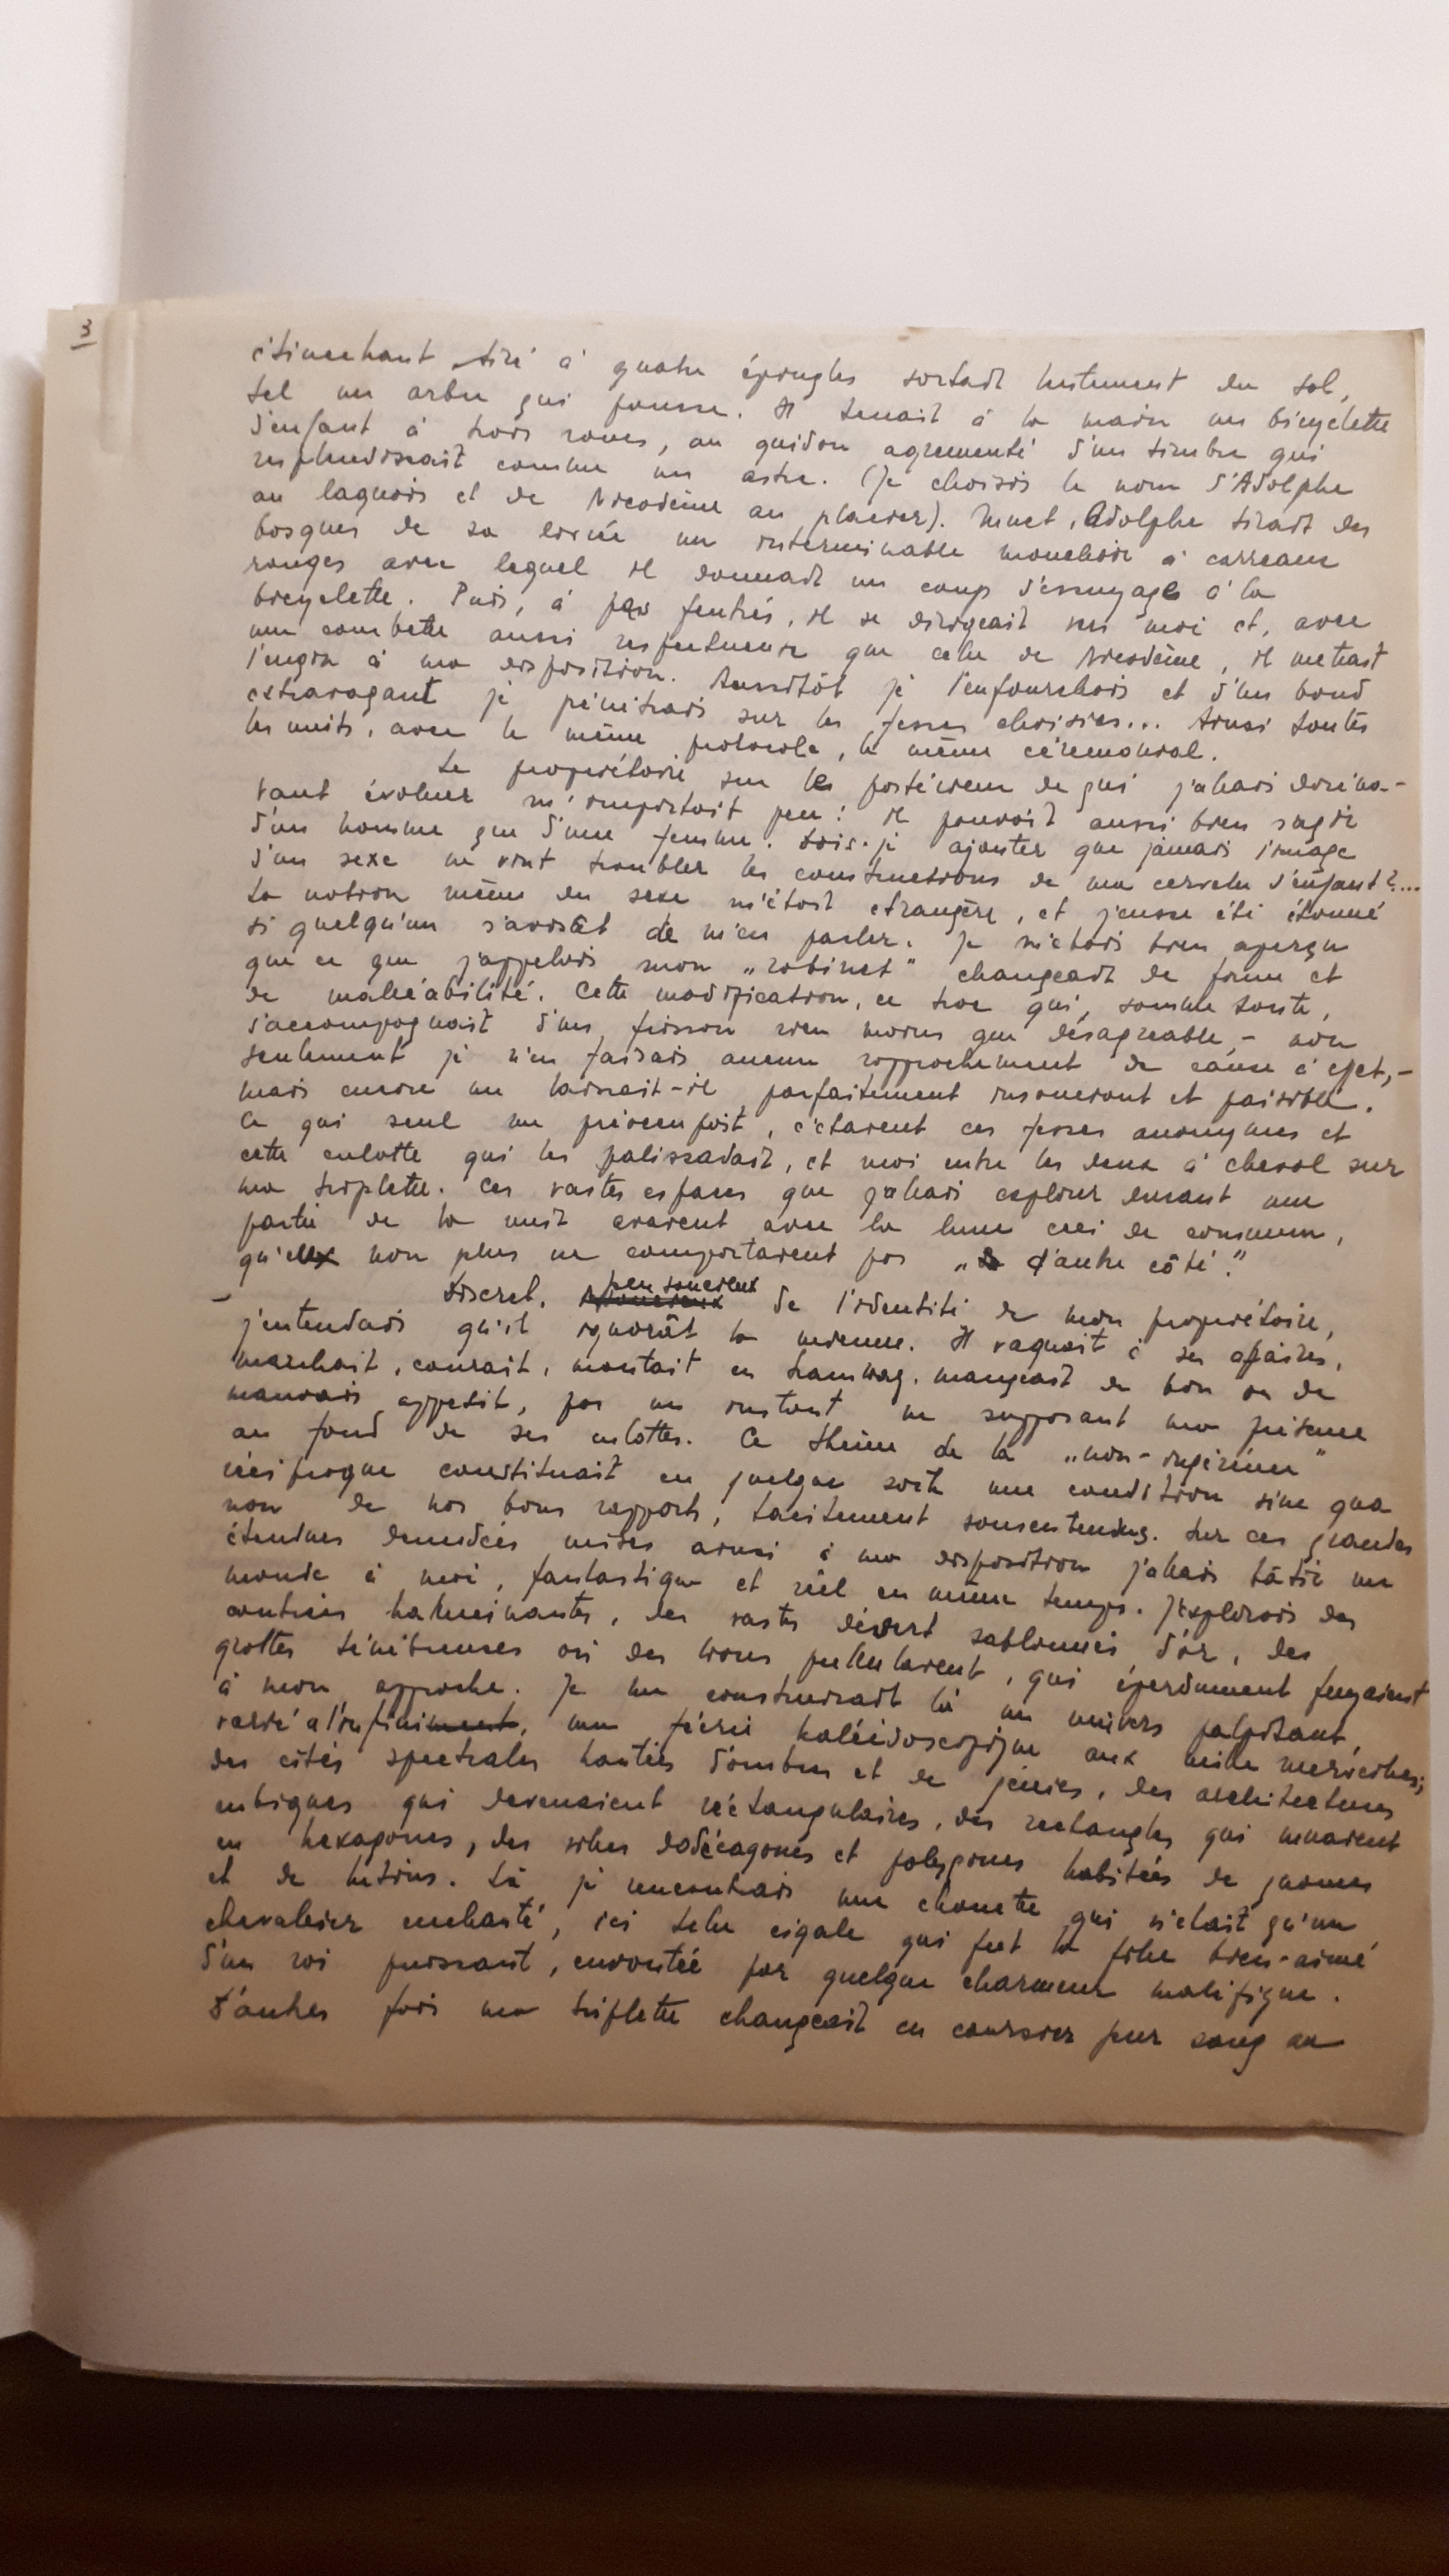 3
étincelant tiré à quatre épingles sortait lentement du sol,
tel un arbre qui pousse. Il tenait à la main une bicyclette
d'enfant à trois roues, au guidon agrementé d'un timbre qui
resplendissait comme un astre. (Je choisis le nom d'Adolphe
au laquais et de Nicodème au placier). Muet, Adolphe tirait des
basques de sa livrée un interminable mouchoir à carreaux
rouges avec lequel il donnait un coup d'essuyage à la
bicyclette. Puis, à pas feutrés, il se dirogeait vers moi et, avec
une courbette aussi respectueuse que celle de Nicodème, il mettait
l'engin à ma disposition. Aussitôt je l'enfourchais et d'un bond
extravagant je pénétrais sur les fesses choisies... Ainsi toutes
les nuits, avec le même protocole, le même cérémonial.
Le propriétaire sur les postérieur de qui j'allais doréna-
vant évoluer m'importait peu: il pouvait aussi bien s'agir
d'un homme que d'une femme. Dois-je ajouter que jamais l'image
d'un sexe ne vint troubler les constructions de ma cervelle d'enfant?...
La notion même du sexe m'était etrangère, et j'eusse été étonné
si quelqu'un s'avisât de m'en parler. Je m'étais bien aperçu
que ce que j'appelais mon „robinet" changeait de forme et
de malléabilité. Cette modification, ce troc qui, somme toute,
s'accompagnait d'un frisson rien moins que désagreable, - non
seulement je n'en faisais aucun rapprochement de cause à effet, -
mais encore me laissait-il parfaitement insouciant et paisible.
Ce qui seul me préoccupait, c'étaient ces fesses anonymes et
cette culotte qui les palissadait, et moi entre les deux à cheval sur
ma triplette. Ces vastes espaces que j'allais explorer durant une
partie de la nuit avaient avec la lune ceci de commun,
qu'elles non plus ne comportaient pas „d'autre côté."
Discret, peu soucieux de l'identité de mon propriétaire,
j'entendais qu'il ignorât la mienne. Il vaquait à ses affaires,
marchait, courait, montait en tramway, mangeait de bon ou de
mauvais appétit, pas un instant ne supposant ma présence
au fond de ses culottes. Ce thème de la „non-ingérence"
réciproque constituait en quelque sorte une condition sine qua
non de nos bons rapports, tacitement sousentendus. Sur ces grandes
étendues denudées mises ainsi à ma disposition j'allais bâtir un
monde à moi, fantastique et réel en même temps. J'explorais des
contrées hallucinantes, des vastes désert sablonnés d'or, des
grottes ténébreuses où des lions pullulaient, qui éperdument fuyaient
à mon approche. Je me construisait là un univers palpitant,
varié à l'infiniment, une féerie kaléidoscopique aux mille merveilles;
des cités spectrales hantées d'ombres et de génies, des architectures
cubiques qui devenaient réctangulaires, des rectangles qui muaient
en hexagones, des villes dodécagones et polygones habitées de gnomes
et de lutins. Là je rencontrais une chouette qui n'était qu'un
chevalier enchanté, ici telle cigale qui fut la fille bien-aimé
d'un roi puissant, envoutée par quelque charmeur maléfique.
D'autres fois ma triplette changeait en coursier pur sang au